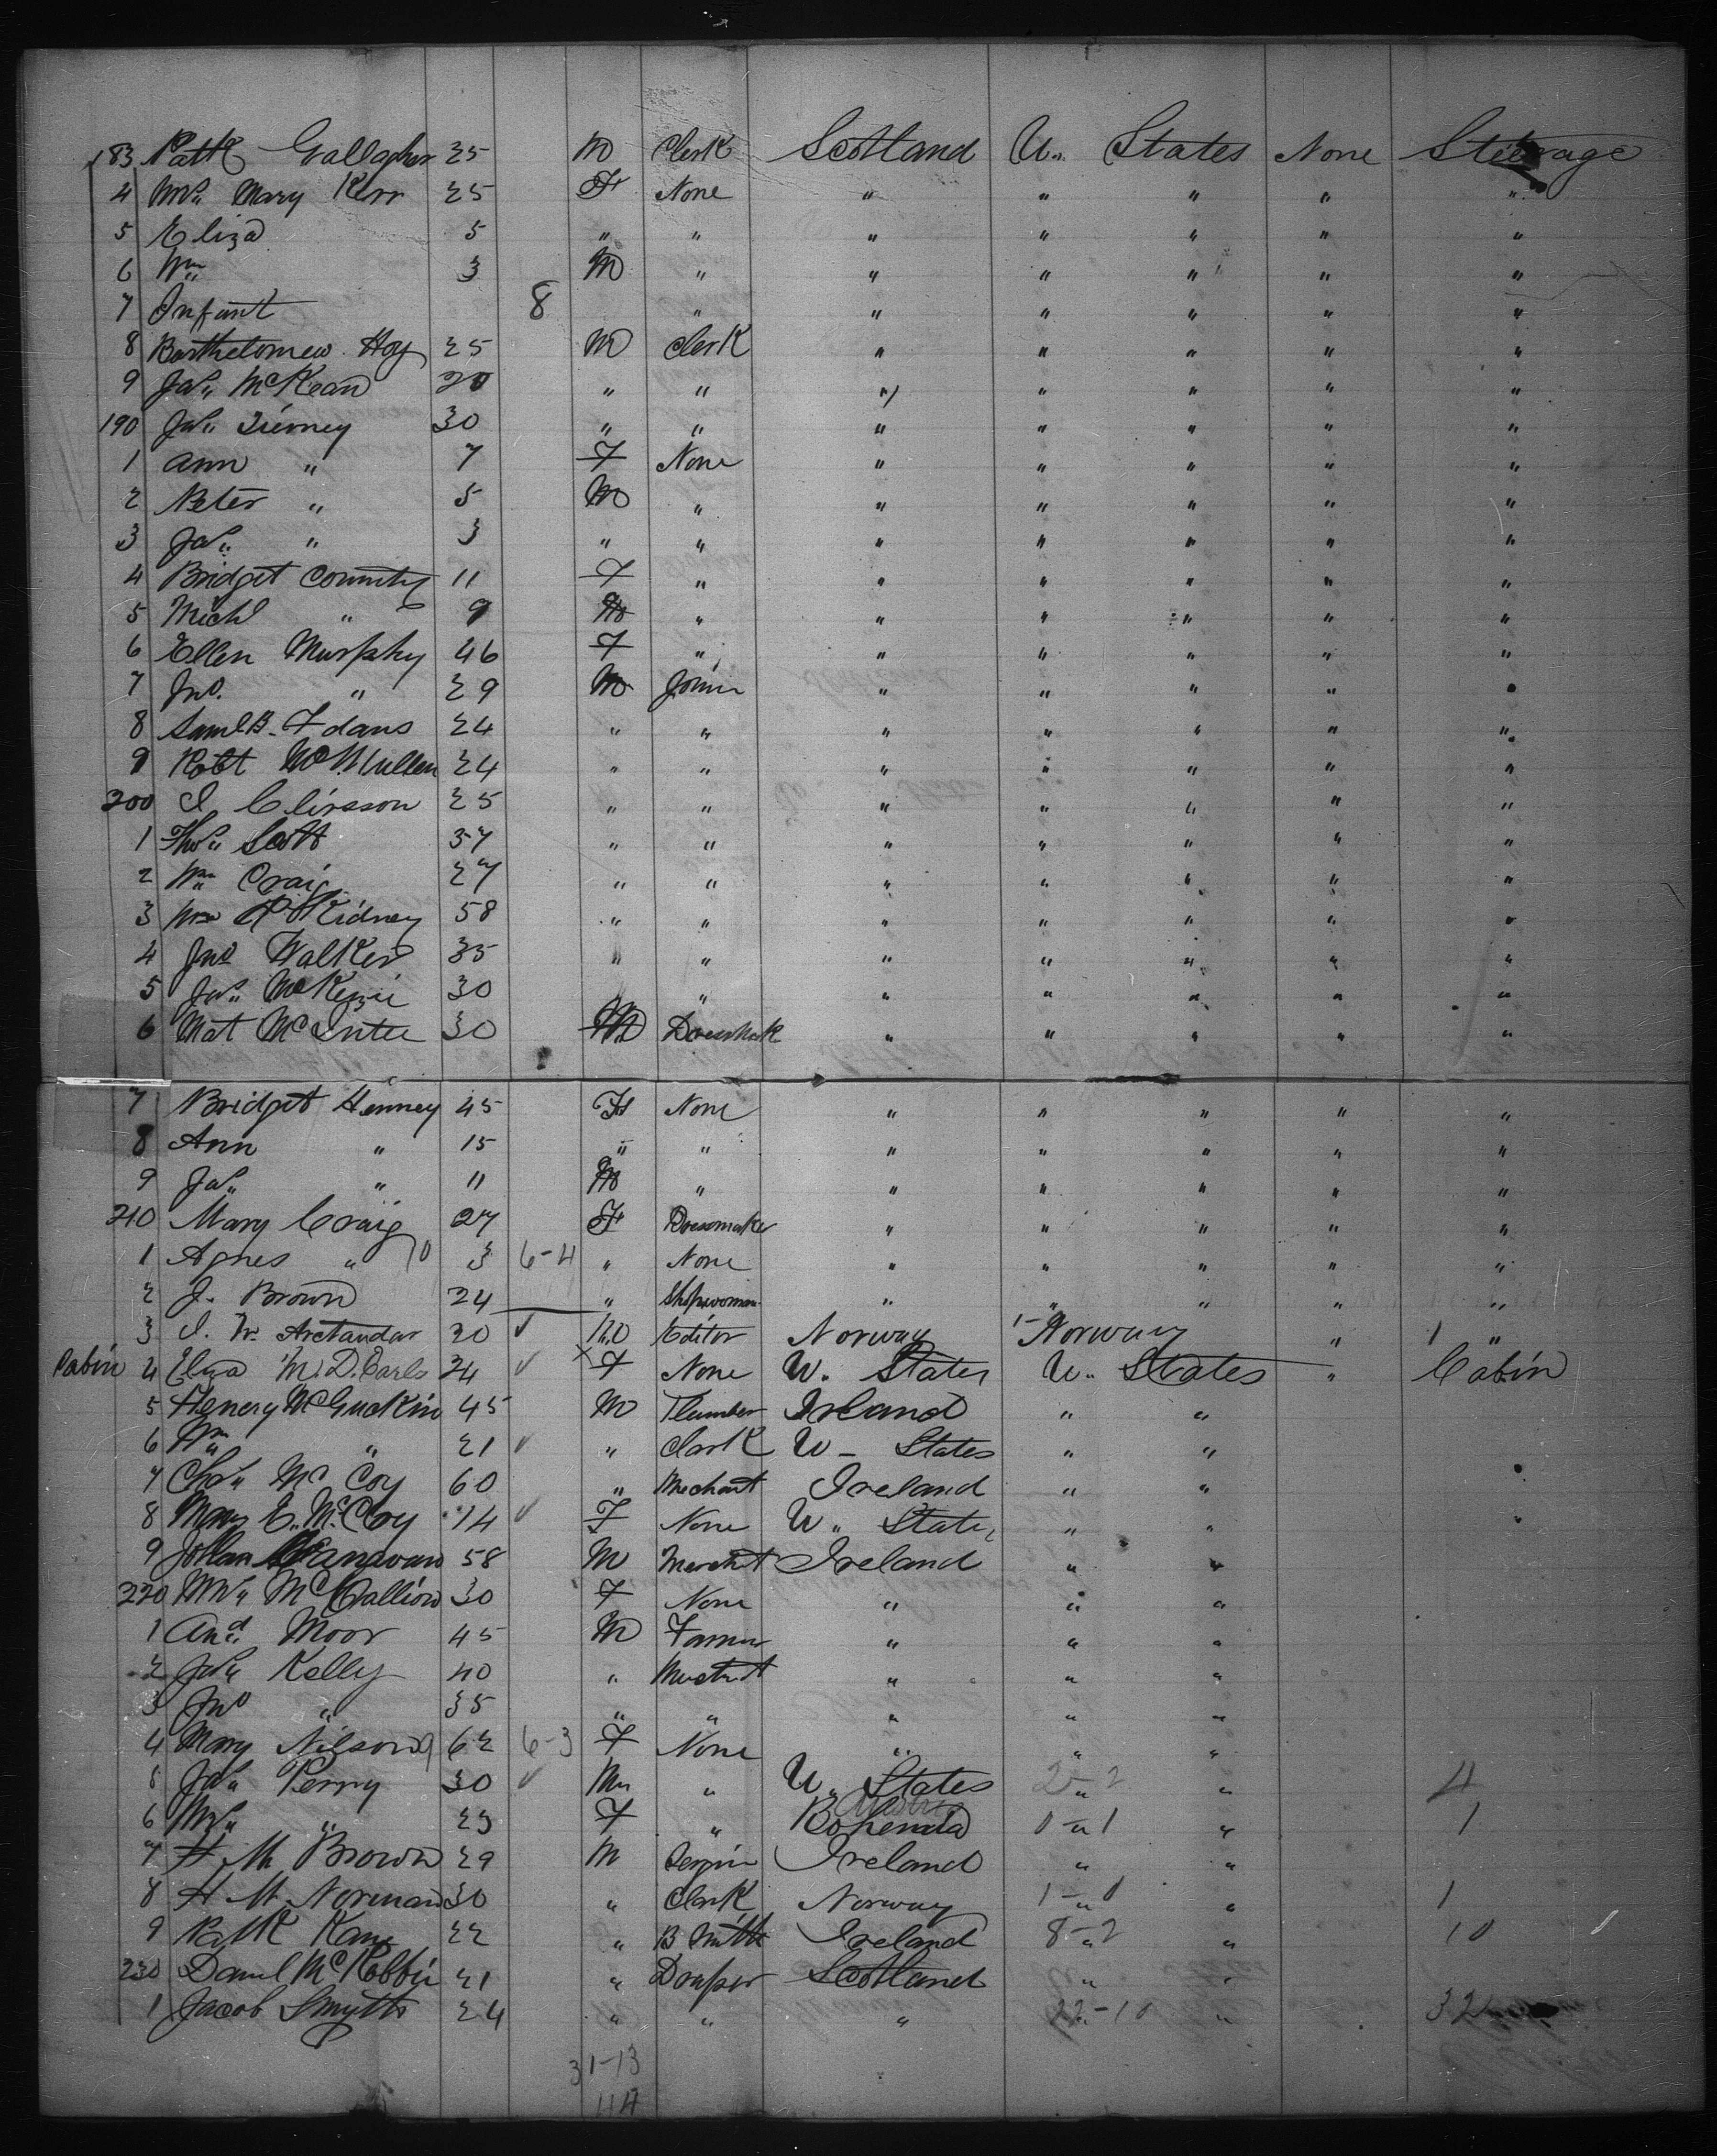 183 Patk Gallagher 25 M Clerk Scotland U. States None Steerage
4 Mrs. Mary Kerr 25 F None " " " " "
5 Eliza 5 " " " " " " "
6 Wm 3 M " " " " " "
7 Infant 8 " " " " " "
8 Bartholomew Hoy 25 M Clerk " " " " "
9 Jas. McKean 20 " " " " " " "
190 Jas. Tierney 30 " " " " " " "
1 Ann " 7 F None " " " " "
2 Peter " 5 M " " " " " "
3 Jas. " 3 " " " " " " "
4 Bridget 11 F " " " " " "
5 Michl " 9 M " " " " " "
6 Ellen Murphy 46 F " " " " " "
7 Jno. " 29 M Joiner " " " " "
8 Saml B. 24 " " " " " " "
9 Robt McMullen 24 " " " " " " "
200 25 " " " " " " "
1 Thos. Scott 37 " " " " " " "
2 Wm Craig 27 " " " " " " "
3 Wm Kidney 58 " " " " " " "
4 Jno Walker 35 " " " " " " "
5 Jas. McKezie 30 " " " " " "
6 Mat McIntee 30 M Dressmak " " " " "
7 Bridget Henney 45 F None " " " " "
8 Ann " 15 " " " " " " "
9 Jas. " 11 M " " " " " "
210 Mary Craig 27 F Dressmaker " " " " "
1 Agnes " 10 3 6-4 " None " " " " "
2 J. Brown 24 " Shopwoman " " " " "
3 I. W. Arctandar 30 ✓ M Editor Norway 1- Norway " 1 "
Cabin 4 Eliza M. D. Earls 34 ✓ x F None U. States U. States " Cabin
5 Henery McGuckin 45 M Plumber Ireland " "
6 Wm " 21 ✓ " Clark U - States " "
7 Chas. McCoy 60 " Mechant Ireland " "
8 Mary E. McCoy 14 ✓ F None U. State, " " "
9 58 M Mercht Ireland " "
220 Mrs. McCallion 30 F None " " "
1 And. Moor 45 M Farmer " " "
2 Jas. Kelly 40 " Merchnt " " "
3 Jno " 35 " " " " "
4 Mary Nilson 9 62 6-3 F None " " "
5 Jas. Perry 30 ✓ M " U. States 2-2 " " 4
6 Mrs. " 23 F " Bohemia Austria 0-1 " " 1
7 H. M Brown 29 M Ireland " "
8 H M. Norman 30 " Clerk Norway 1-0 " " 1
9 Patk Kane 22 " B Smith Ireland 8-2 " " 10
230 Danl McRobbie 21 " Draper Scotland " "
1 Jacob Smyth 24 " " " 22-10 " " 32
31-13